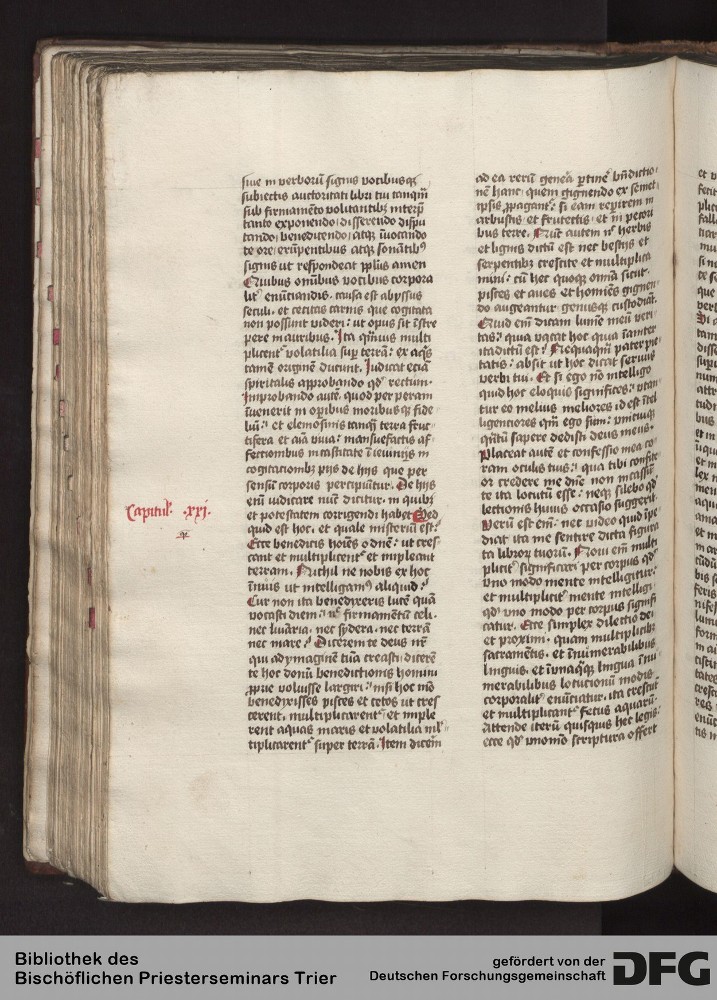 siue in verborū signis vocibusqꝫ
subiectis auctoritati libri tui tanqm̄
sub firmamēto volitantibꝫ interp̄
tando exponendo disserendo dispu
tando benedicendo atqꝫ īuocando
te ore erūpentibus atqꝫ sonātibꝰ
signis ut respondeat pplūs amen
Quibus om̄ibus vocibus corpora
lit᷑ enūciandis causa est abyssus
seculi et cecitas carnis que cogitata
non possunt videri ut opus sit īstre
pere in auribus. Ita qm̄uis multi
plicent᷑ volatilia sup̄ terrā ex aq̄s
tamē originē ducunt. Iudicat eciā
spiritalis approbando qd᷑ rectum.
Improbando autē quod perperam
inuenerit in op̄ibus moribusqꝫ fide
liū et elemosinis tanqꝫ terra fruc
tifera et aīa viua mansuefactis af
fectionibus in castitate ī ieiunijs in
cogitationibꝫ pijs de hijs que per
sensū corporis percipiūtur. De hijs
enī iudicare nūc dicitur in quibꝫ
et potestatem corrigendi habet Sed
quid est hoc et quale misteriū est
Capitul᷑. .xxj.
Ecce benedicis hoīes o dn̄e ut cres
cant et multiplicent᷑ et impleant
terram. Nichil ne nobis ex hoc
īnuis ut intelligamꝰ aliquid
Cur non ita benedixeris lucē quā
vocasti diem nec firmamētū celi
nec luīaria nec sydera nec terrā
nec mare Dicerem te deus nr̄
qui ad ymaginē tuā creasti dicerē
te hoc donū benedictionis homini
ꝓprie voluisse largiri nisi hoc mō
benedixisses pisces et cetos ut cres
cerent multiplicarent᷑ et imple
rent aquas maris et volatilia ml᷑
tiplicarent᷑ super terrā Item dicem
ad ea rerū genea ꝑtinē bn̄dictio
nē hanc quem gignendo ex semet
ipsis ꝓpagant᷑ si eam reꝑirem in
arbustis et frutectis et in pecori
bus terre. Nūc autem nec herbis
et lignis dictū est nec bestijs et
serpentibꝫ crescite et multiplica
mini cū hec quoqꝫ omīa sicut
pisces et aues et homīes gignen
do augeantur genusqꝫ custodiāt
Quid em̄ dicam lumē meū veri
tas quia vacat hoc quia īaniter
ita dictū est Nequaqm̄ pater pie
tatis absit ut hoc dicat seruus
verbi tui. Et si ego nō intelligo
quid hoc eloquio significes utan
tur eo melius meliores id est ītel
ligentiores qm̄ ego sum vnicuiqꝫ
qn̄tū sapere dedisti deus meus.
Placeat autē et confessio mea co
ram oculis tuis qua tibi confite
or credere me dn̄e non incassū
te ita locutū esse neqꝫ silebo qd᷑
lectionis huius occasio suggerit
Verū est em̄ nec video quid īpe
diat ita me sentire dicta figura
ta librorꝫ tuorū. Noui em̄ multi
plicit᷑ significari per corpus qd᷑
vno modo mente intelligitur
et multiplicit᷑ mente intelligi
qd᷑ vno modo per corpus signifi
catur. Ecce simplex dilectio dei
et proximi quam multiplicibꝫ
sacramētis et īnumerabilibus
linguis et ī vnaqꝫqꝫ lingua īnu
merabilibus locutionū modis
corporalit᷑ enūtiatur ita crescūt
et multiplicant᷑ fetus aquarū
Attende iterū quisquis hec legis
ecce qd᷑ vno mō scriptura offert
Bibliothek des
Bischöflichen Priesterseminars Trier
gefördert von der
Deutschen Forschungsgemeinschaft
DFG